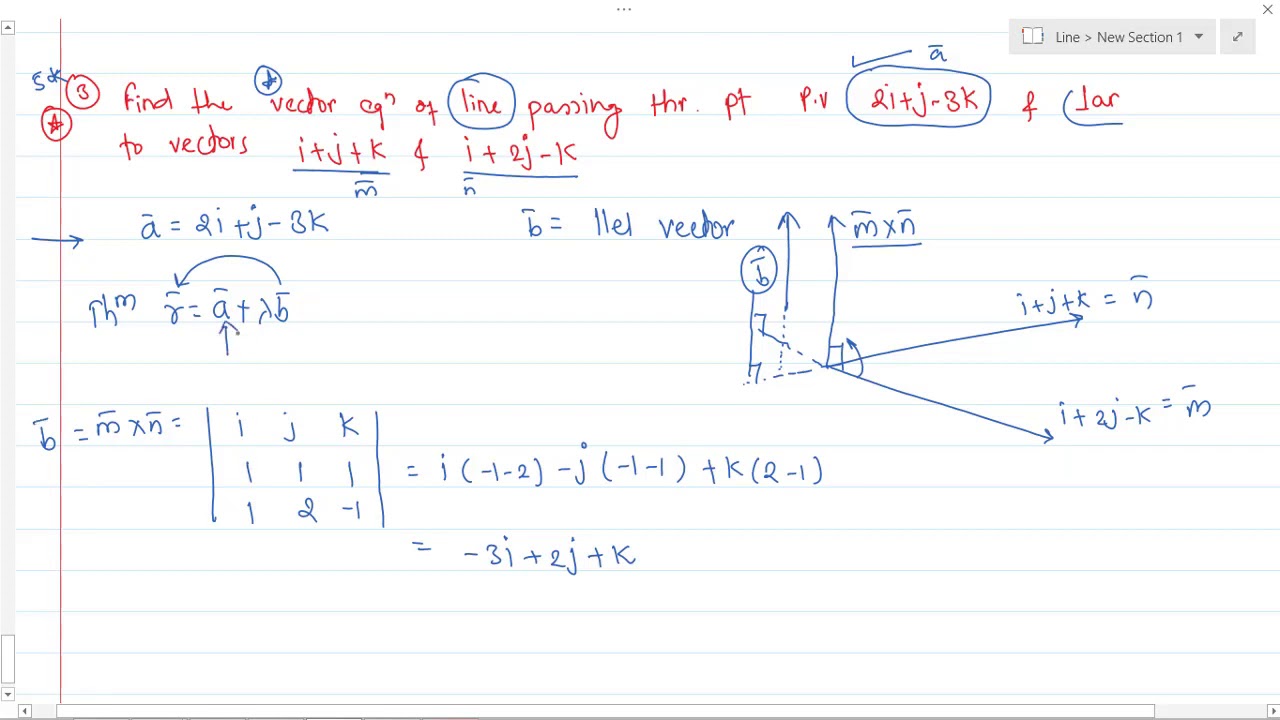 Line > New Section 1
5* ③ Find the vector eqⁿ of line passing thr. pt P.V 2i+j-3k & ⊥ar
ā
to vectors i+j+k & i+2j-k
m̄ n̄
ā = 2i+j-3k b̄ = llel vector m̄×n̄
b̄
Thᵐ r̄ = ā + λb̄ i+j+k = n̄
i+2j-k = m̄
b̄ = m̄×n̄ = | i j k |
| 1 1 1 | = i(-1-2) -j(-1-1) + k(2-1)
| 1 2 -1 |
= -3i+2j+k